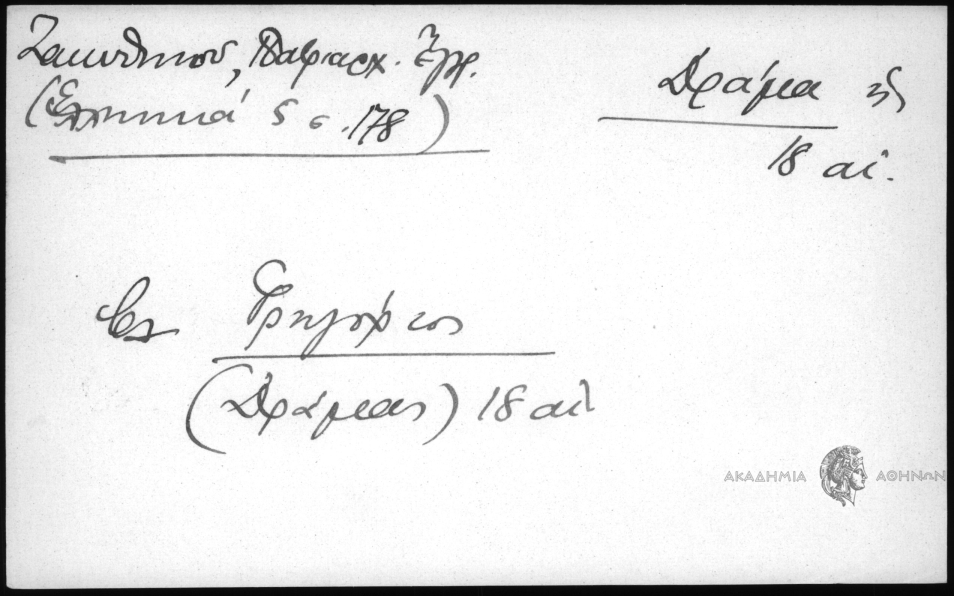 Ζακυθηνού, Πατριαρχ. Έγγρ.
(Ελληνικά 5 σ. 178)
Δράμα
18 αι.
βλ Γρηγόριος
(Δράμας) 18 αι
ΑΚΑΔΗΜΙΑ ΑΘΗΝΩΝ